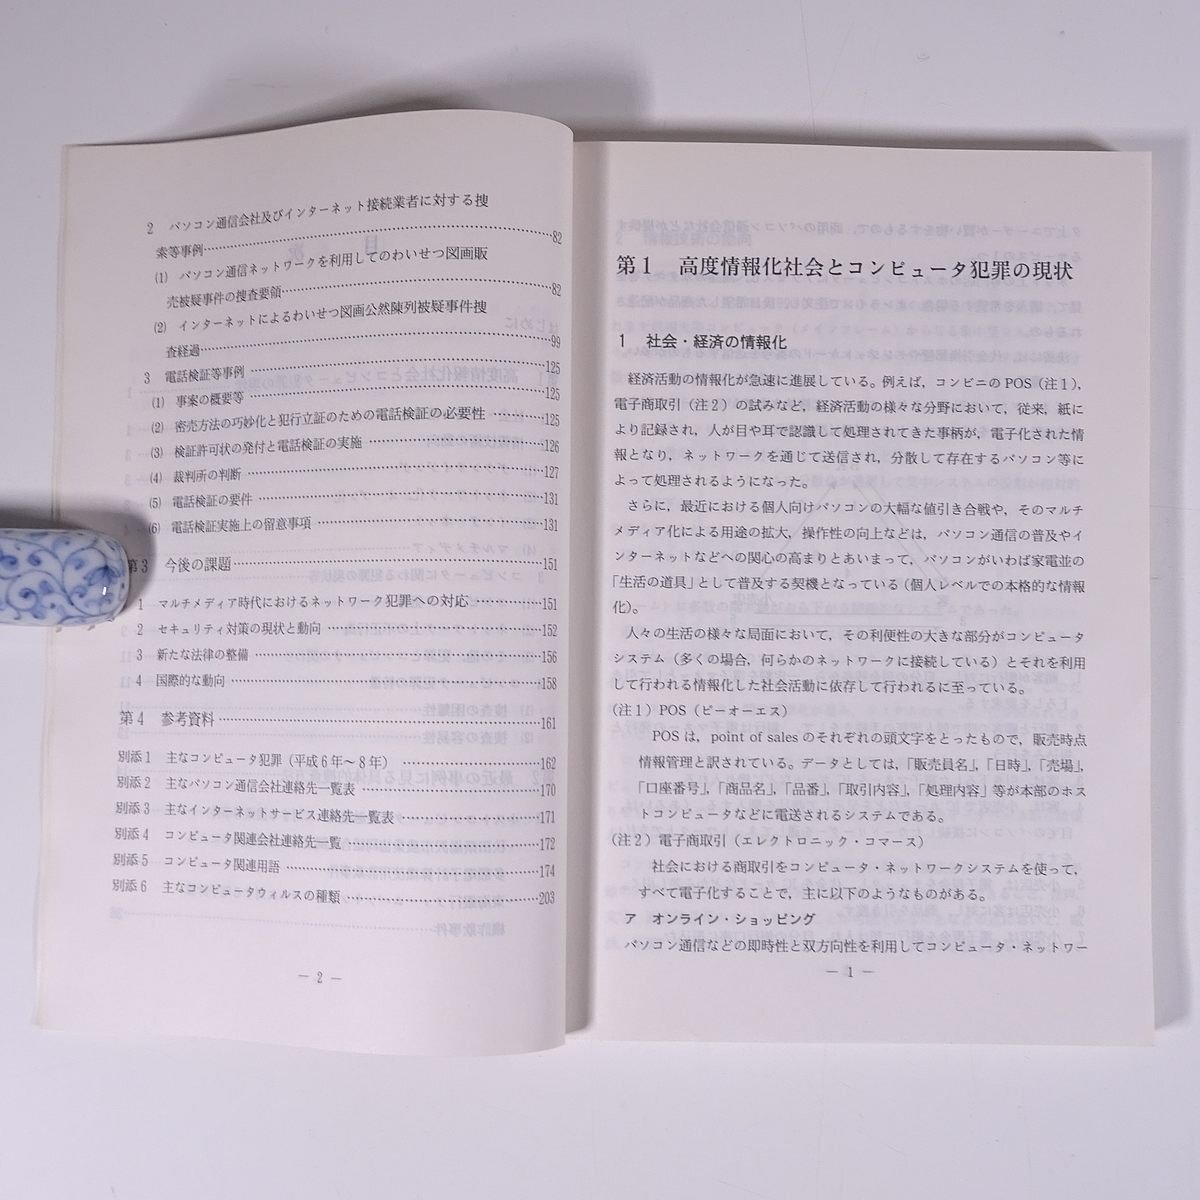 2 パソコン通信会社及びインターネット接続業者に対する捜
索等事例……82
(1) パソコン通信ネットワークを利用してのわいせつ図画販
売被疑事件の捜査要領……82
(2) インターネットによるわいせつ図画公然陳列被疑事件捜
査経過……99
3 電話検証等事例……125
(1) 事案の概要等……125
(2) 密売方法の巧妙化と犯行立証のための電話検証の必要性……125
(3) 検証許可状の発付と電話検証の実施……126
(4) 裁判所の判断……127
(5) 電話検証の要件……131
(6) 電話検証実施上の留意事項……131
第3 今後の課題……151
1 マルチメディア時代におけるネットワーク犯罪への対応……151
2 セキュリティ対策の現状と動向……152
3 新たな法律の整備……156
4 国際的な動向……158
第4 参考資料……161
別添1 主なコンピュータ犯罪(平成6年~8年)……162
別添2 主なパソコン通信会社連絡先一覧表……170
別添3 主なインターネットサービス連絡先一覧表……171
別添4 コンピュータ関連会社連絡先一覧……172
別添5 コンピュータ関連用語……174
別添6 主なコンピュータウィルスの種類……203
― 2 ―
第1 高度情報化社会とコンピュータ犯罪の現状
1 社会・経済の情報化
経済活動の情報化が急速に進展している。例えば,コンビニのPOS(注1),
電子商取引(注2)の試みなど,経済活動の様々な分野において,従来,紙に
より記録され,人が目や耳で認識して処理されてきた事柄が,電子化された情
報となり,ネットワークを通じて送信され,分散して存在するパソコン等に
よって処理されるようになった。
さらに,最近における個人向けパソコンの大幅な値引き合戦や,そのマルチ
メディア化による用途の拡大,操作性の向上などは,パソコン通信の普及やイ
ンターネットなどへの関心の高まりとあいまって,パソコンがいわば家電並の
「生活の道具」として普及する契機となっている(個人レベルでの本格的な情報
化)。
人々の生活の様々な局面において,その利便性の大きな部分がコンピュータ
システム(多くの場合,何らかのネットワークに接続している)とそれを利用
して行われる情報化した社会活動に依存して行われるに至っている。
(注1)POS(ピーオーエス)
POSは,point of salesのそれぞれの頭文字をとったもので,販売時点
情報管理と訳されている。データとしては,「販売員名」,「日時」,「売場」,
「口座番号」,「商品名」,「品番」,「取引内容」,「処理内容」等が本部のホス
トコンピュータなどに電送されるシステムである。
(注2)電子商取引(エレクトロニック・コマース)
社会における商取引をコンピュータ・ネットワークシステムを使って,
すべて電子化することで,主に以下のようなものがある。
ア オンライン・ショッピング
パソコン通信などの即時性と双方向性を利用してコンピュータ・ネットワー
― 1 ―